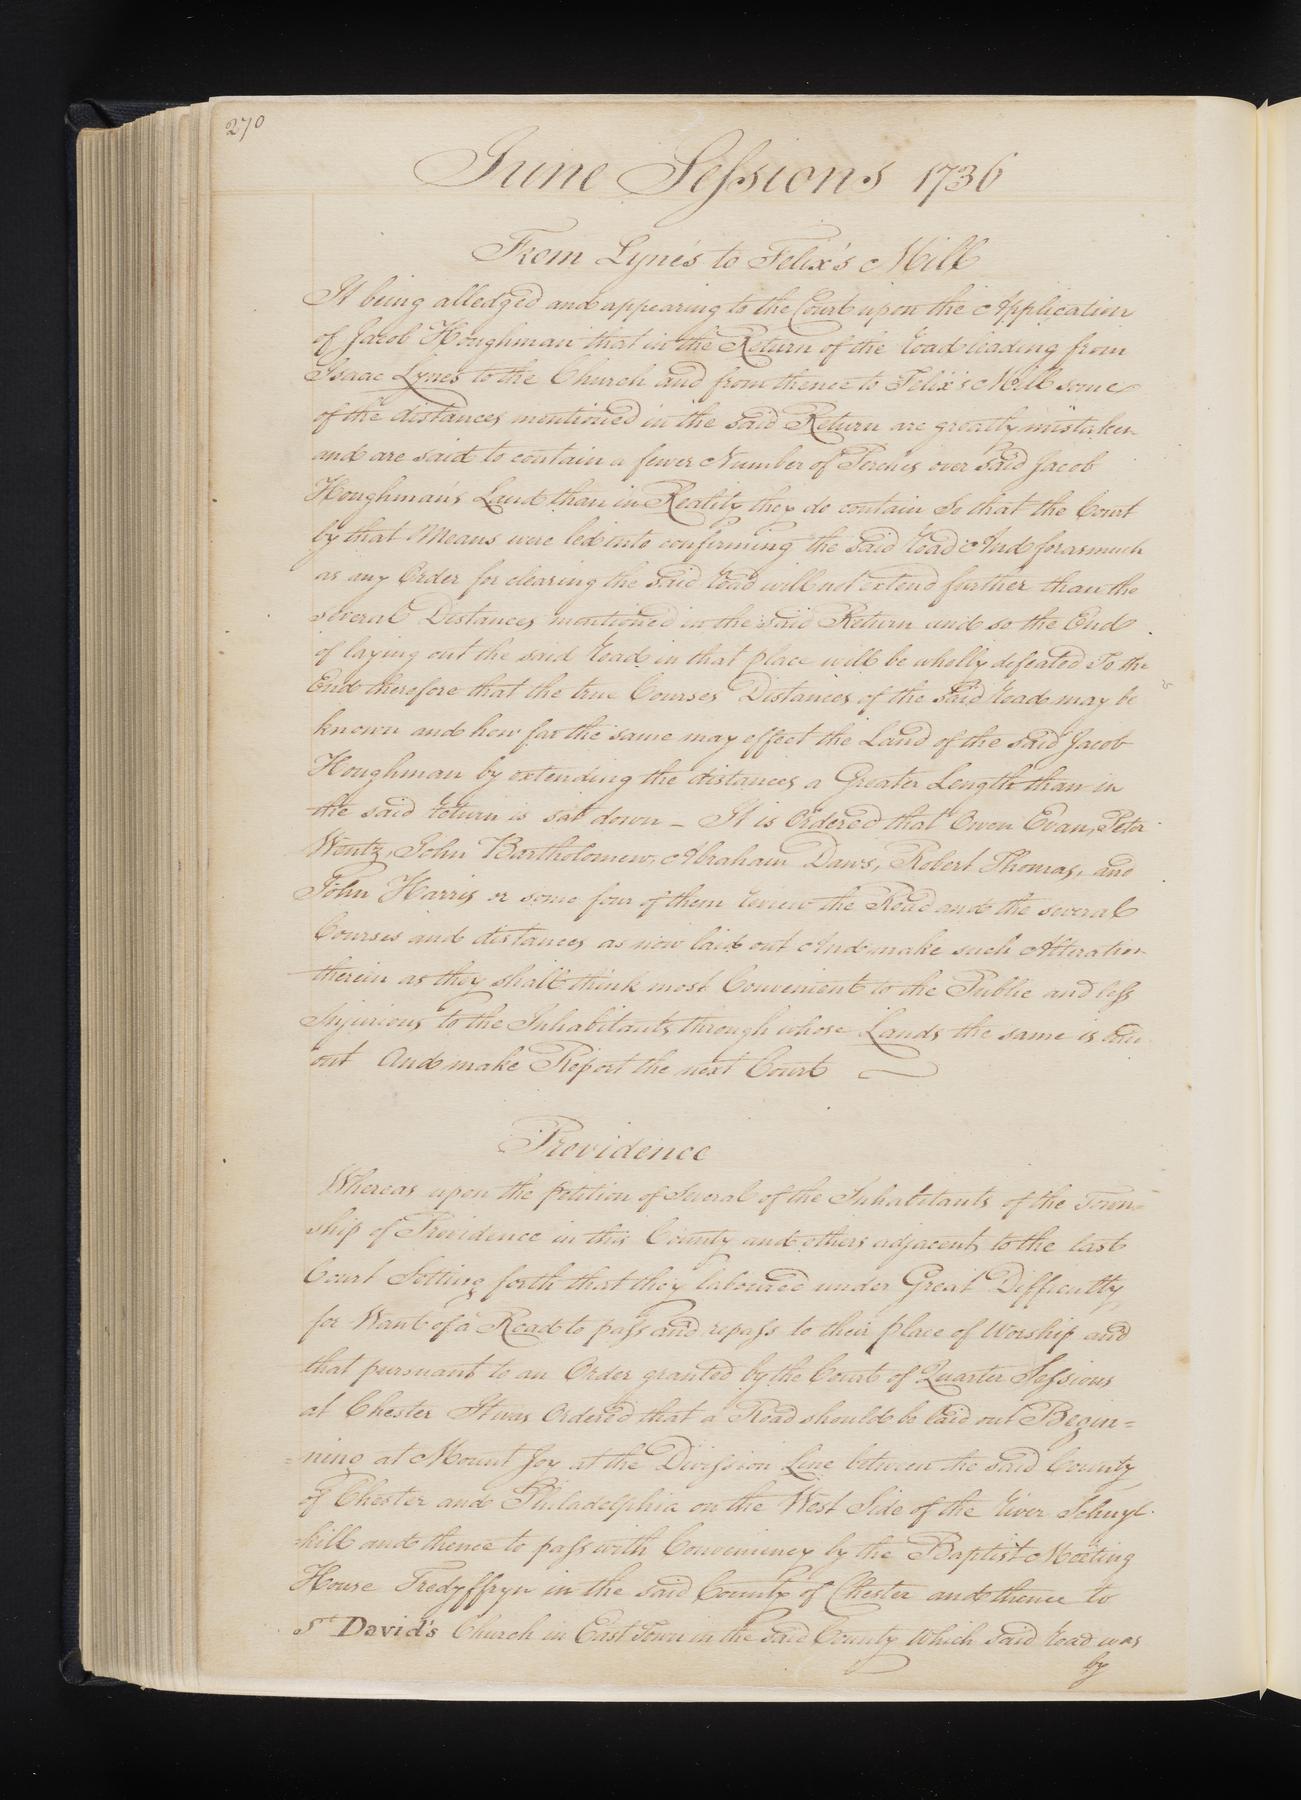 270
June Sessions 1736
From Lynes to Felix's Mill
It being alledged and appearing to the Court upon the Application
of Jacob Houghman that in the Return of the road leading from
Isaac Lynes to the Church and from thence to Felix's Mill some
of the distances mentioned in the said Return are greatly mistaken
and are said to contain a fewer Number of Perches over said Jacob
Houghman's Land than in Reality they do contain So that the Court
by that Means were led into confirming the said road And forasmuch
as any Order for clearing the said road will not extend further than the
several Distances mentioned in the said Return and so the End
of laying out the said road in that place will be wholly defeated To the
End therefore that the true Courses Distances of the said road may be
known and how far the same may effect the Land of the said Jacob
Houghman by extending the distances a Greater Length than in
the said return is sat down – It is Ordered that Owen Evan, Peter
Wentz, John Bartholomew, Abraham Daws, Robert Thomas, and
John Harris or some four of them review the Road and the several
Courses and distances as now laid out And make such Alteration
therein as they shall think most Convenient to the Public and less
Injurious to the Inhabitants through whose Lands the same is laid
out And make Report the next Court
Providence
Whereas upon the petition of Several of the Inhabitants of the Town=
ship of Providence in this County and others adjacent, to the last
Court Setting forth that they laboured under Great Difficulty
for Want of a Road to pass and repass to their place of Worship and
that pursuant to an Order granted by the Court of Quarter Sessions
at Chester It was Ordered that a Road should be laid out Begin=
=ning at Mount Joy at the Division Line between the said County
of Chester and Philadelphia on the West Side of the river Schuyl-
-kill and thence to pass with Conveniency by the Baptist Meeting
House Tredyffryn in the said County of Chester and thence to
St David's Church in East Town in the said County Which said road was
by